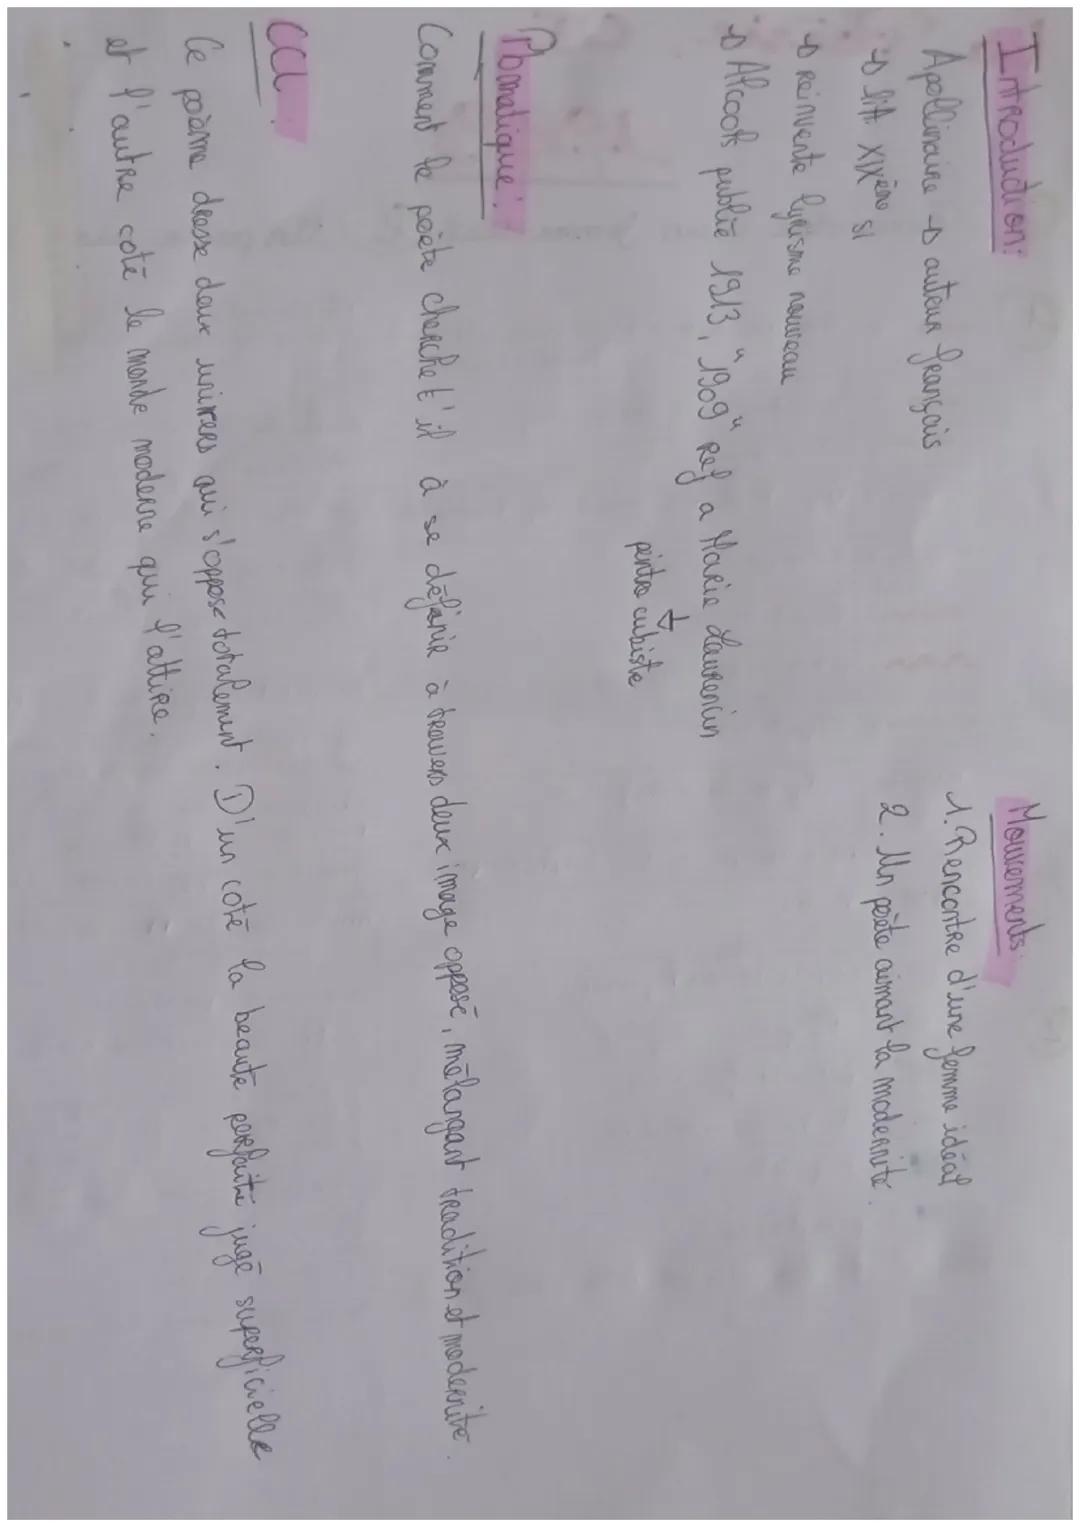 Introduction:
Apollinaire → auteur français
→ litt XIXème sl
→ réinvente lyrisme nouveau
→ Alcools publié 1913, "1909" ref a Marie Laurencin
↓
peintre cubiste
Mouvements:
1. Rencontre d'une femme idéal
2. Un poète aimant la modernité.
Pbmatique:
Comment le poète cherche t'il à se définir à travers deux image opposé, mélangant tradition et modernité.
CCl:
Ce poème dresse deux univers qui s'oppose totalement. D'un coté la beauté perfaite jugé superficielle
et l'autre coté le monde moderne qui l'attire.